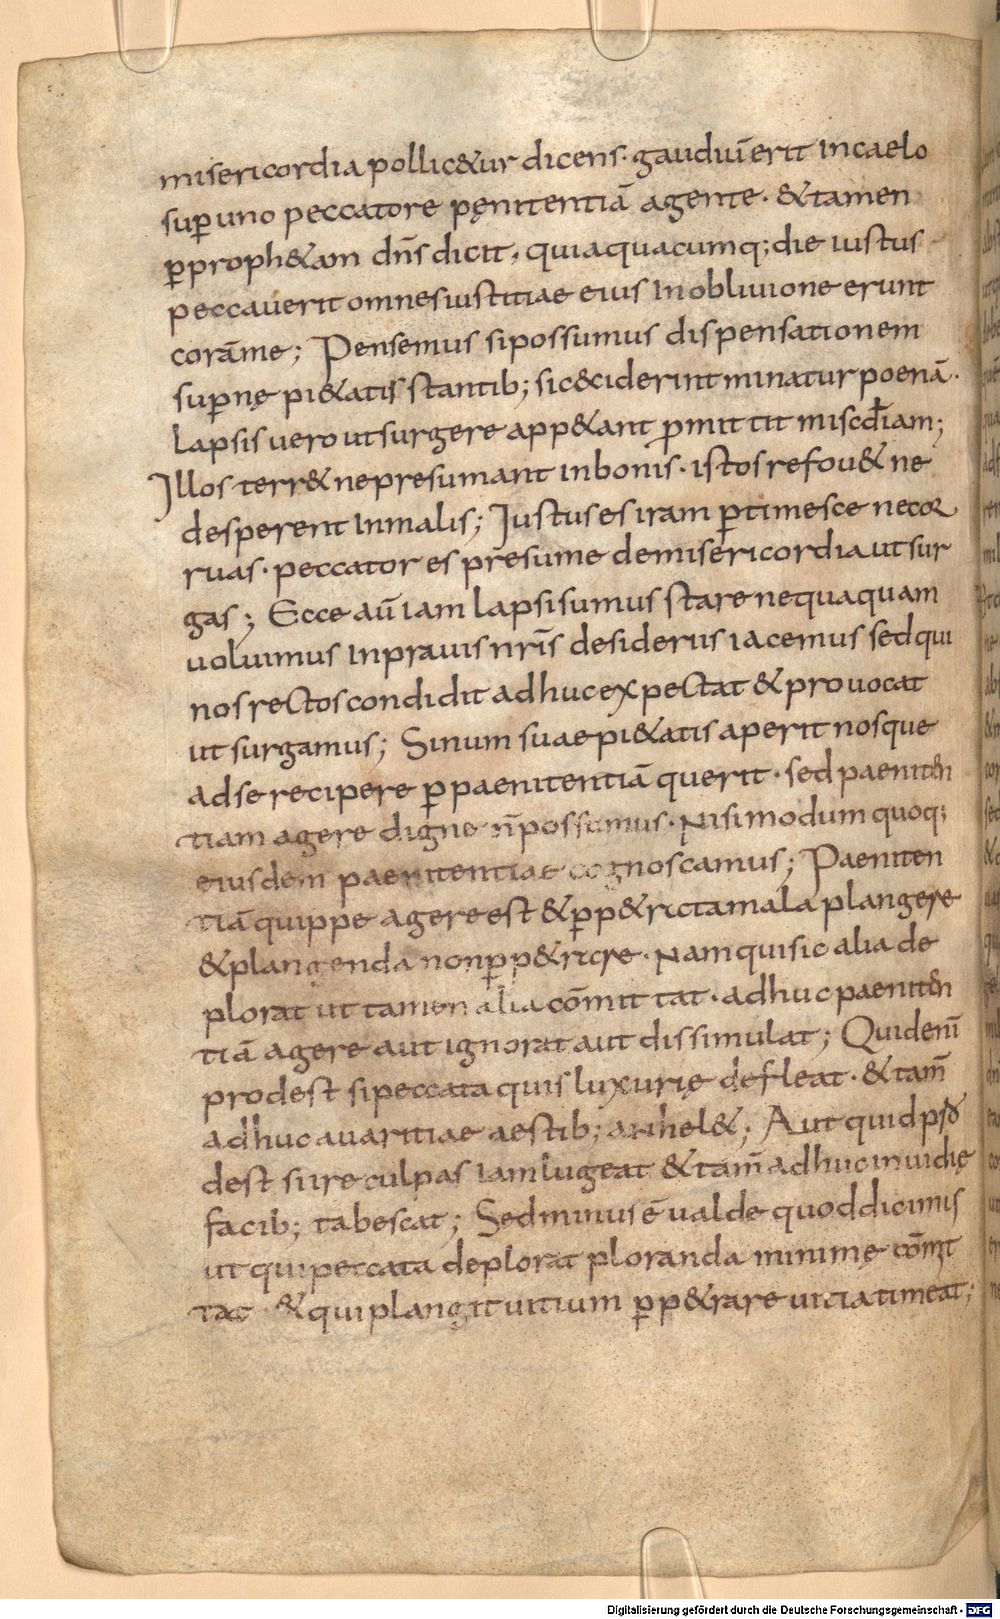 misericordia pollic&ur dicens· gaudiū erit in caelo
sup̄ uno peccatore pęnitentiā agente· &tamen
p̄ proph&am dn̄s dicit, quia quacumq; die iustus
peccauerit omnes iustitiae eius in obliuione erunt
corā me; Pensemus si possumus dispensationem
sup̄nę pi&atis stantib; si c&ciderint minatur poenā·
lapsis uero ut surgere app&ant p̄mittit miscd̄iam;
Illos terr& ne presumant in bonis· istos refou& ne
desperent in malis; Iustus es iram p̄timesce ne cor
ruas· peccator es presume de misericordia ut sur
gas; Ecce aū iam lapsi sumus stare nequaquam
uoluimus in prauis nr̄is desideriis iacemus sed qui
nos rectos condidit adhuc expectat & prouocat
ut surgamus; Sinum suae pi&atis aperit nosque
ad se recipere p̄ paenitentiā querit· sed paeniten
tiam agere digne n̄ possumus· Nisi modum quoq;
eiusdem paenitentiae cognoscamus; Paeniten
tiā quippe agere est & p̄p&rata mala plangere
& plangenda non p̄p&rare· Nam qui sic alia de
plorat ut tamen alia cōmittat· adhuc paeniten
tiā agere aut ignorat aut dissimulat; Quid enī
prodest si peccata quis luxurię defleat· & tam̄
adhuc auaritiae aestib; anhel&; Aut quid p̱ro
dest si ire culpas iam lugeat & tam̄ adhuc inuidię
facib; tabescat; Sed minus ē ualde quod dicimus
ut qui peccata deplorat ploranda minimę cōmit
tat· & qui plangit uitium p̄p&rare uitia timeat;
Digitalisierung gefördert durch die Deutsche Forschungsgemeinschaft - DFG